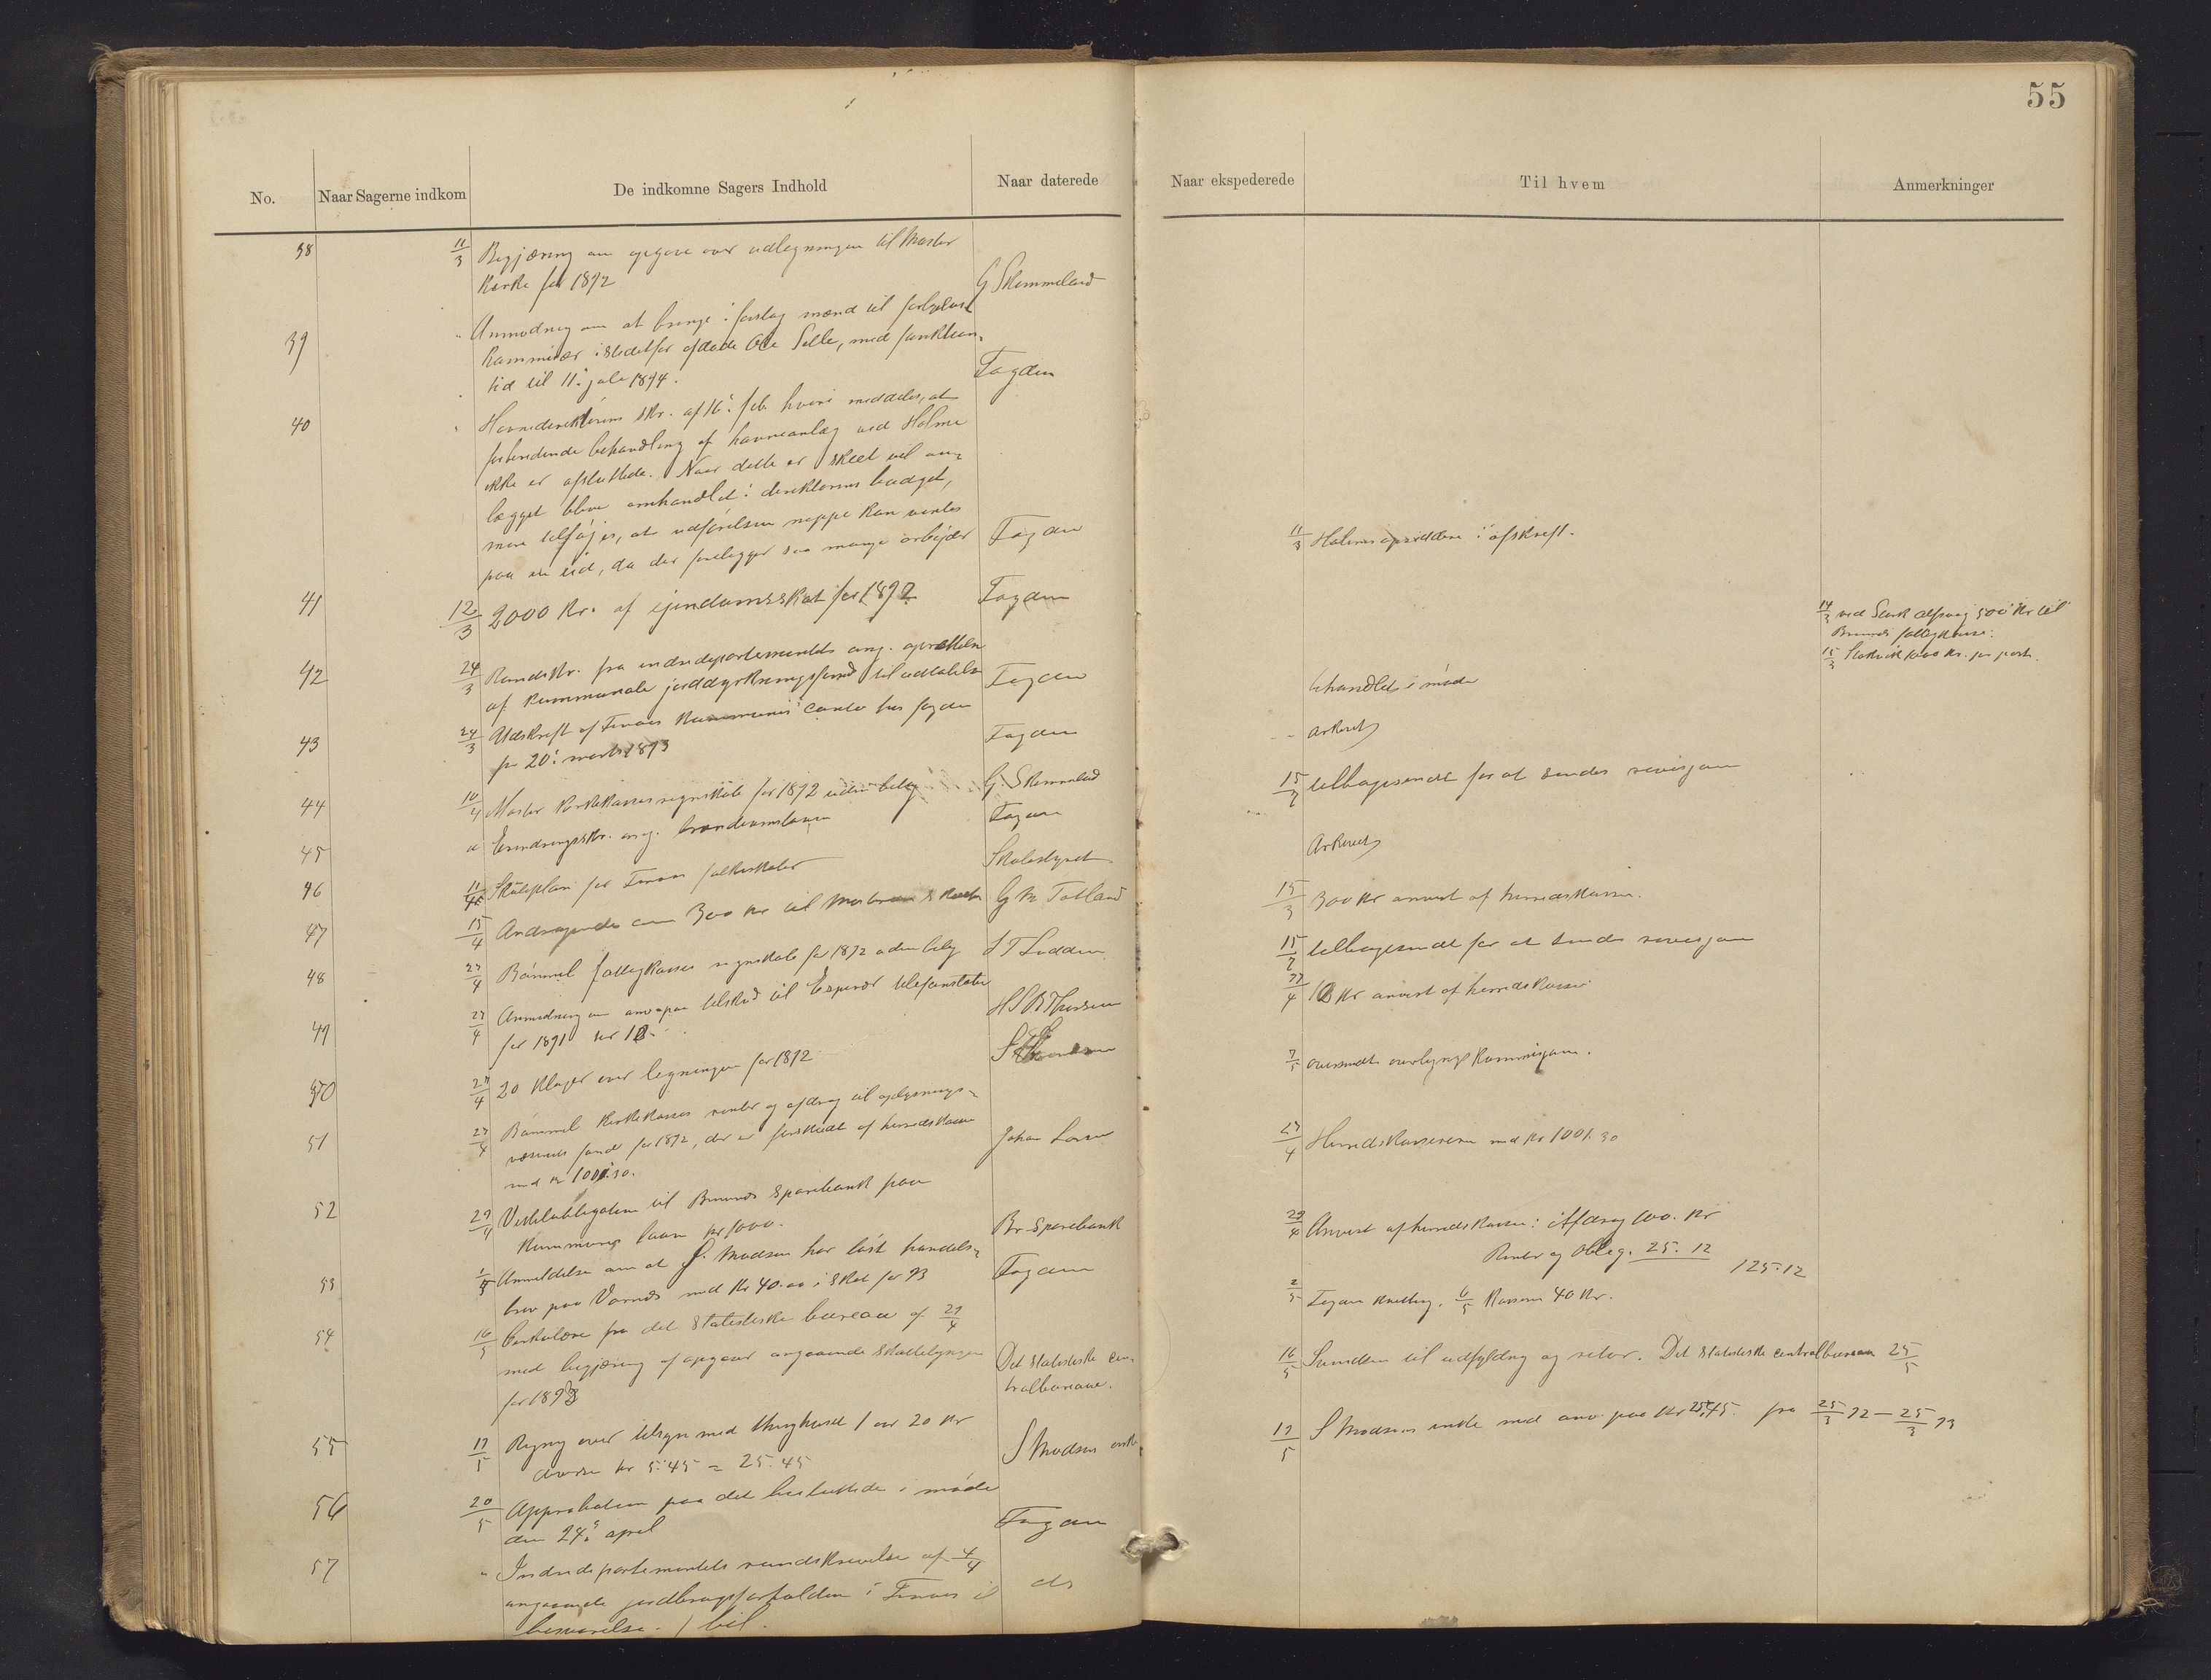 55
No.
Naar Sagerne indkom
De indkomne Sagers Indhold
Naar daterede
Naar ekspederede
Til hvem
Anmerkninger
38 11/3 Begjæring om opgave over udlegningen til Moster
kirke for 1892 G Skimmeland
39 " Anmodning om at bringe i forslag mænd til forligelses
kommissær istedetfor afdøde Ole Selle, med funktions-
tid til 11. juli 1894. Fogden
40 " Havnedirektørens skr. af 16. feb. hvori meddeles, at
forberedende behandling af havneanlæg ved Holme
ikke er afsluttede. Naar dette er skeet vil an-
lægget blive omhandlet i direktørens budget,
men tilføjes, at udførelsen neppe kan ventes
paa en tid, da der foreligger saa mange arbejder Fogden
11/3 i afskrift.
41 12/3 2000 kr. af ejendomsskat for 1892 Fogden
14/3 ved 500 kr til
15/3 1000 kr. pr post.
42 24/3 Rundskr. fra indredepartementet ang. oprettelse
af kommunale jorddyrkningsfond til udtalelse Fogden
behandlet i møde
43 24/3 Udskrift af Finaas kommunes conto hos fogden
pr 20. marts 1893 Fogden
Arkivet
44 10/4 Moster kirkekasses regnskab for 1892 uden bilag G. Skimmeland
15/7 tilbagesendt for at sendes revisjonen
45 " Erindringsskr. ang. brandvæsenet Fogden
Arkivet
46 11/4 Skoleplan for Finaas folkeskoler Skolestyret
47 15/4 Andragende om 300 kr til G M Totland
15/3 300 kr anvist af herredskassen.
48 27/4 Bømmel fattigkasses regnskab for 1892 uden bilag
15/7 tilbagesendt for at sendes revisjonen
49 27/4 Anmodning om anv. paa tilskud til Espevær telefonstation
for 1891 kr 18.
27/4 18 kr anvist af herredskassen
50 27/4 20 klager over ligningen for 1892
7/5 oversendt overligningskommisjonen.
51 27/4 Bømmel kirkekasses renter og afdrag til oplysnings-
væsenets fond for 1892, der er forskudt af herredskassen
med kr 1001.30. Johan Larsen
27/4 Herredskassereren med kr 1001.30
52 29/4 Vexelobligation til Bremnes Sparebank paa
kommunens laan kr 1000. Br. Sparebank
29/4 Anvist af herredskassen: Afdrag 100. kr
Renter og Oblig. 25.12
125.12
53 1/5 Anmeldelse om at S. Madsen har løst handels-
brev paa Vornes med kr 40.00 i skat for 93 Fogden
2/5 Fogden kvittering. 6/5 Kasseren 40 kr.
54 16/5 Cirkulære fra det statistiske bureau af 29/4
med begjæring af opgaver angaaende skatteligningen
for 1893 Det statistiske cen-
tralbureau.
16/5 til udfyldning og retur. Det statistiske centralbureau 25/5
55 19/5 Regning over tilsyn med thinghuset 1 aar 20 kr
diverse kr 5.45 = 25.45 S Madsens enke
19/5 S Madsens enke med anv. paa kr 25.45. fra 25/3 92 — 25/3 93
56 20/5 Approbation paa det besluttede i møde
den 24. april Fogden
57 " Indredepartementets rundskrivelse af 4/4
angaaende jordbrugsforholdene i Finaas til
besvarelse. 1 bil. do